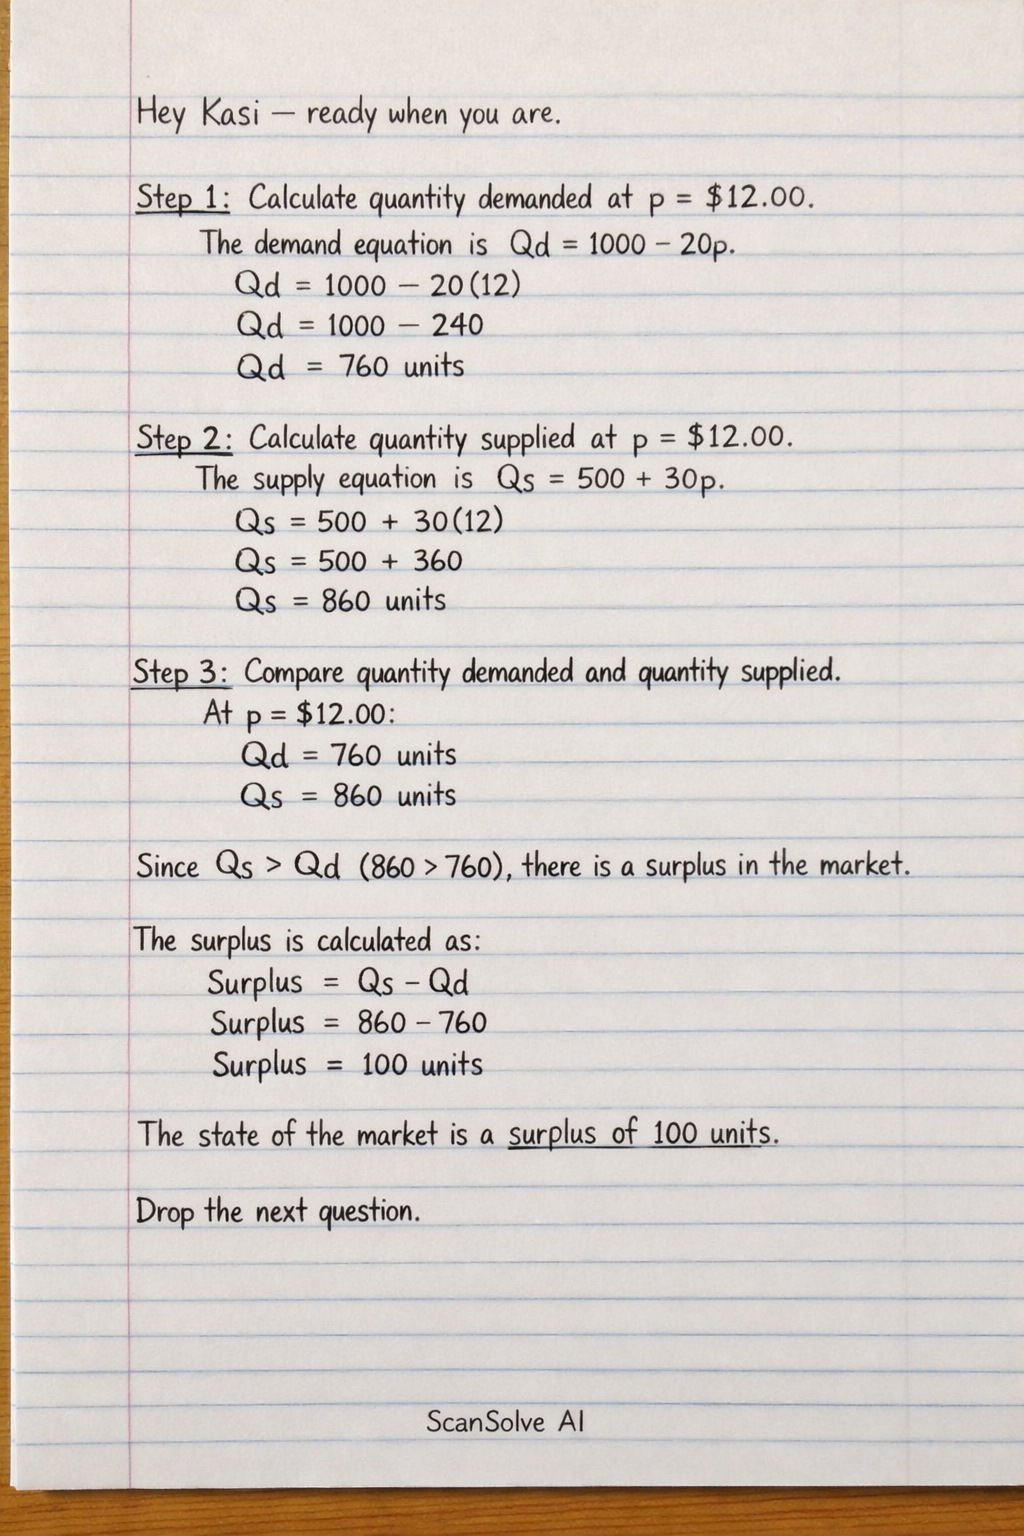 Hey Kasi — ready when you are.
Step 1: Calculate quantity demanded at p = $12.00.
The demand equation is Qd = 1000 – 20p.
Qd = 1000 — 20(12)
Qd = 1000 — 240
Qd = 760 units
Step 2: Calculate quantity supplied at p = $12.00.
The supply equation is Qs = 500 + 30p.
Qs = 500 + 30(12)
Qs = 500 + 360
Qs = 860 units
Step 3: Compare quantity demanded and quantity supplied.
At p = $12.00:
Qd = 760 units
Qs = 860 units
Since Qs > Qd (860 > 760), there is a surplus in the market.
The surplus is calculated as:
Surplus = Qs – Qd
Surplus = 860 – 760
Surplus = 100 units
The state of the market is a surplus of 100 units.
Drop the next question.
ScanSolve AI